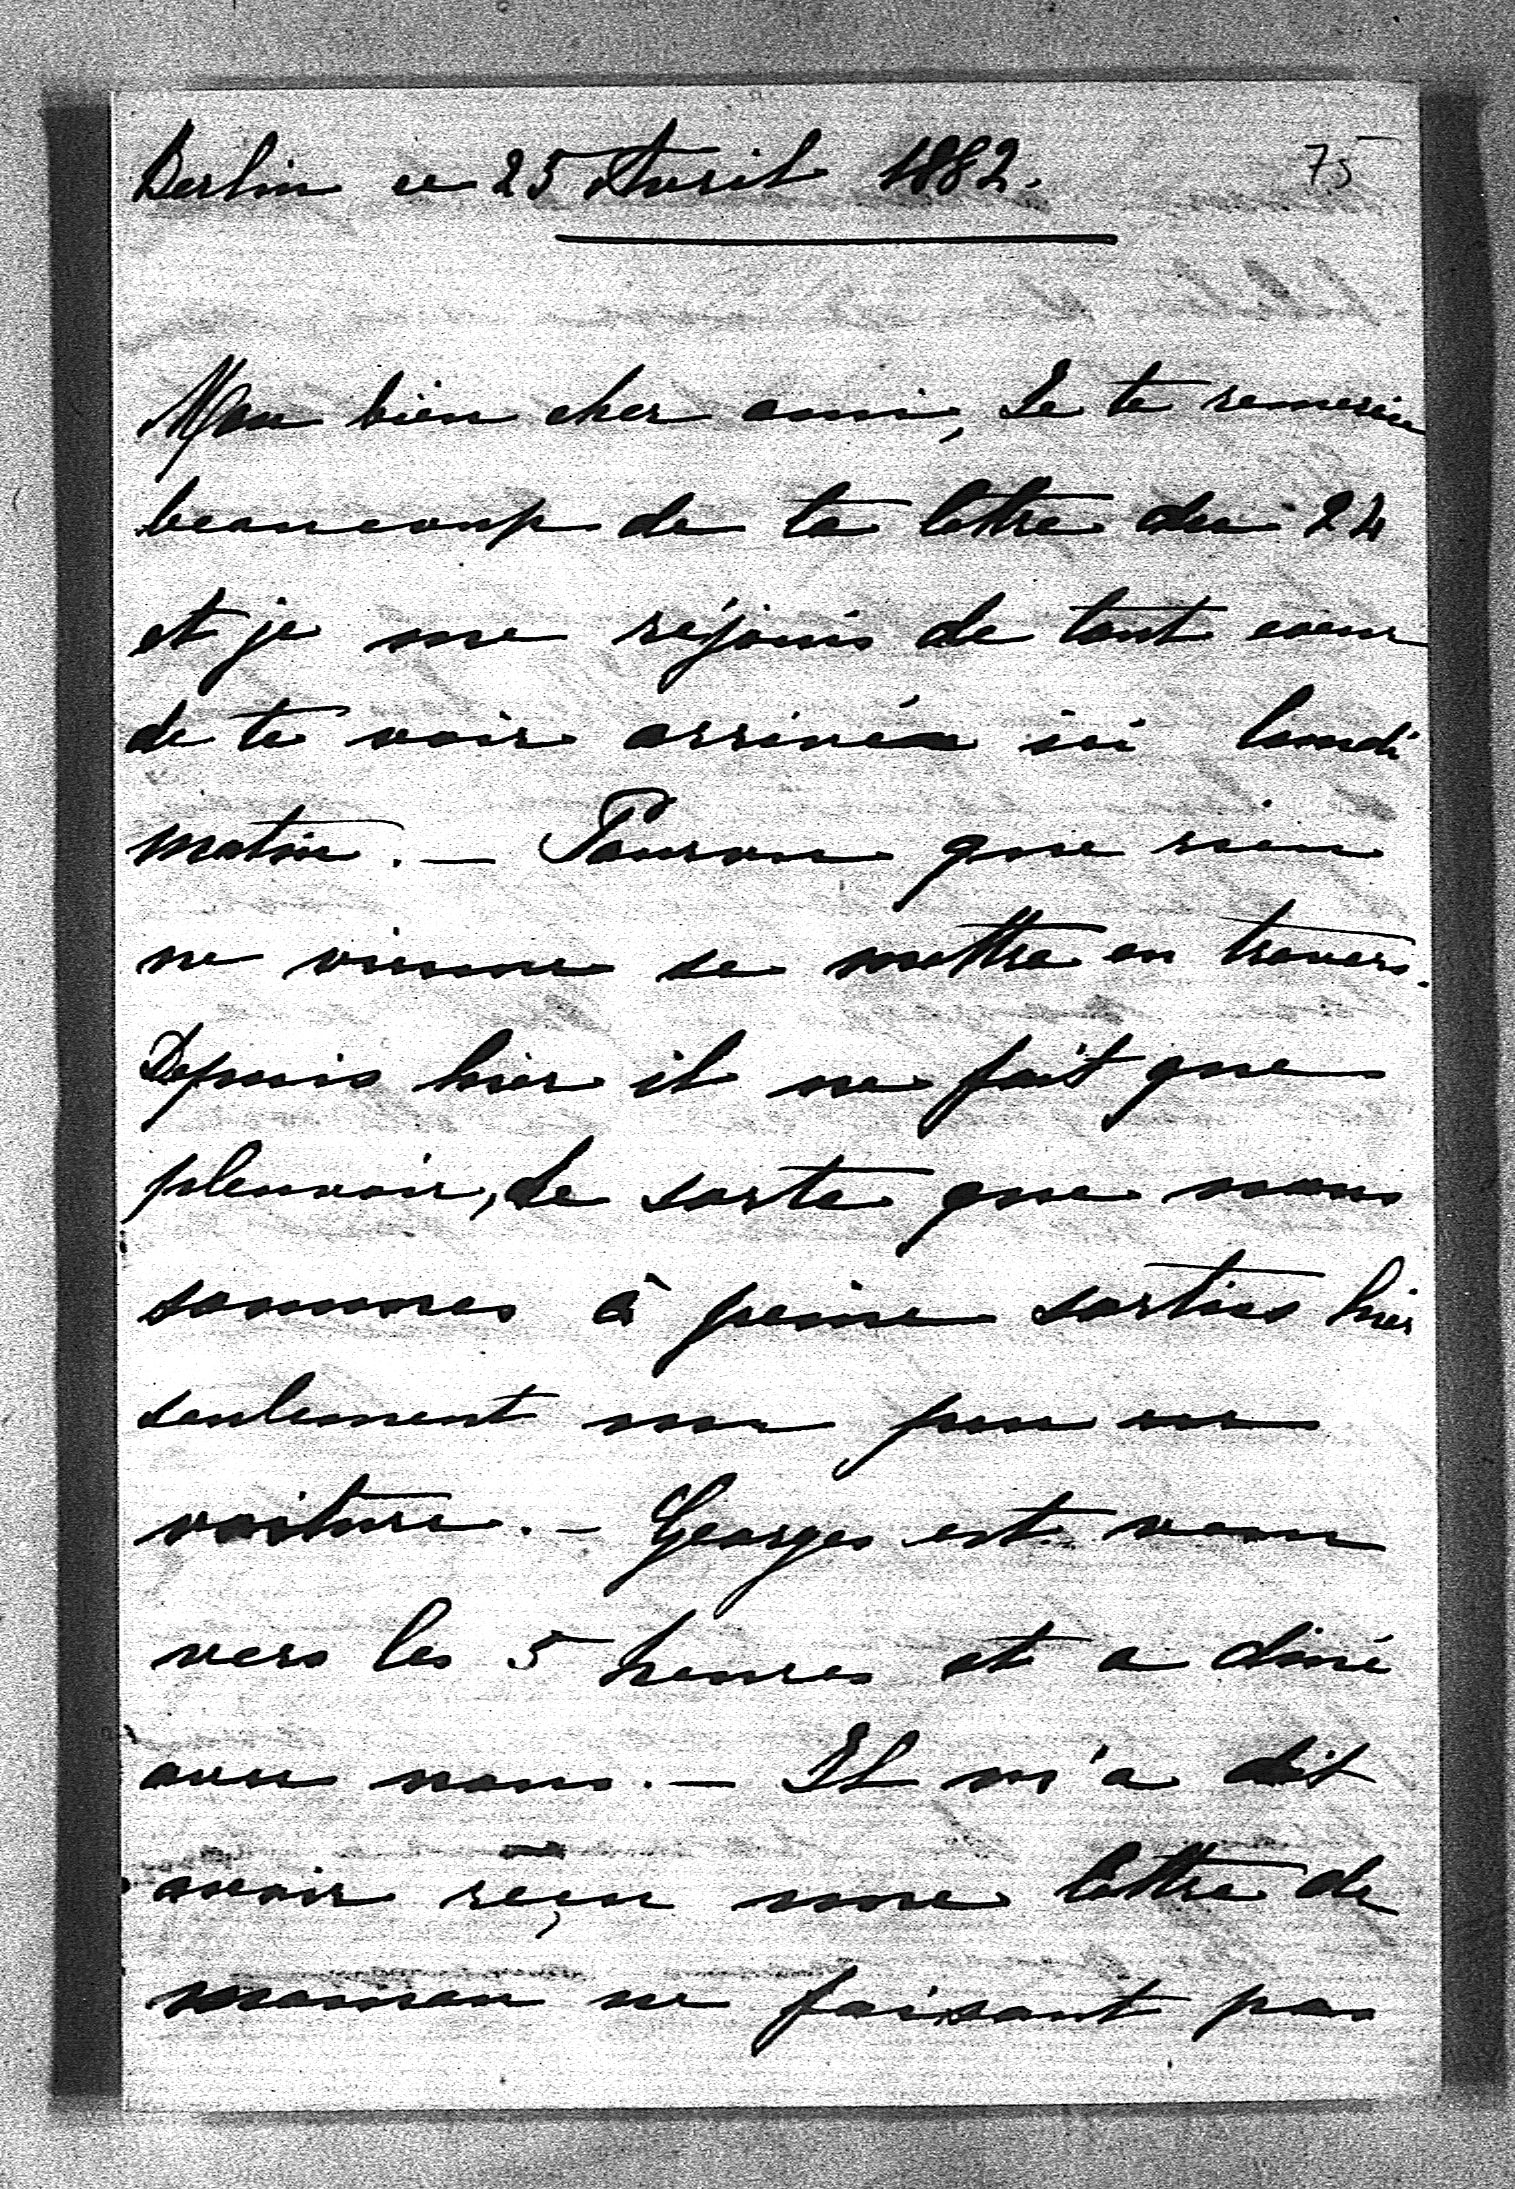 Berlin ce 25 Avril 1882. 75
Mon bien cher ami, Je te remercie
beaucoup de ta lettre du 24
et je me réjouis de tout coeur
de te voir arrivée ici lundi
matin. — Pourvu que rien
ne vienne se mettre en travers.
Depuis hier il ne fait que
pleuvoir, de sorte que nous
sommes à peine sorties hier
seulement un peu en
voiture. — Georges est venu
vers les 5 heures et a diné
avec nous. — Il m'a dit
avoir reçu une lettre de
maman ne faisant pas